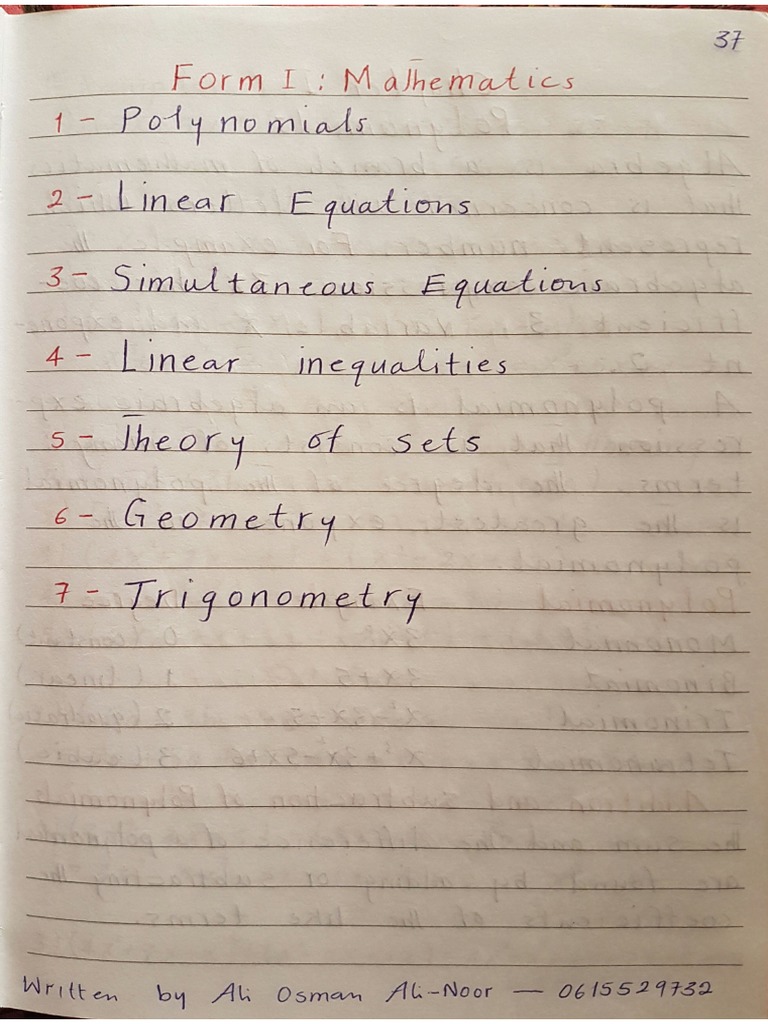 37
Form I : Mathematics
1 - Polynomials
2 - Linear Equations
3 - Simultaneous Equations
4 - Linear inequalities
5 - Theory of sets
6 - Geometry
7 - Trigonometry
Written by Ali Osman Ali-Noor — 0615529732